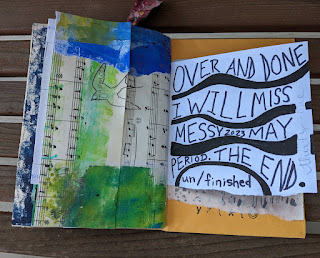 OVER AND DONE
I WILL MISS
MESSY 2023 MAY
PERIOD. THE END.
un/finished